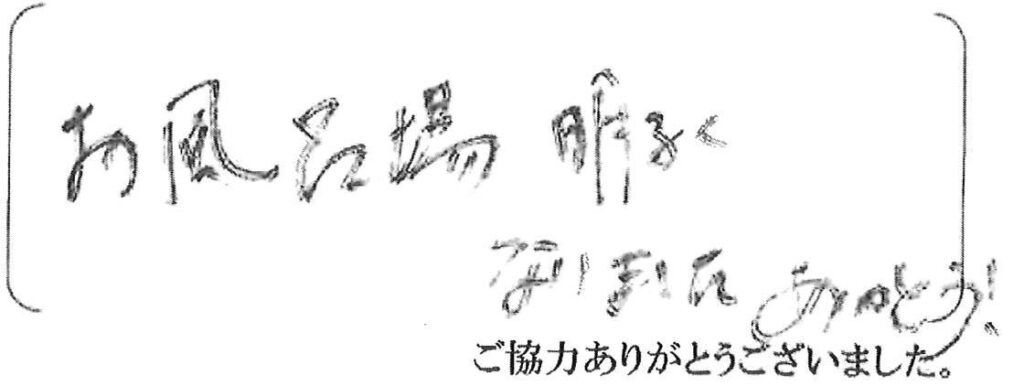 お風呂場 明るく
なりました ありがとう!
ご協力ありがとうございました。